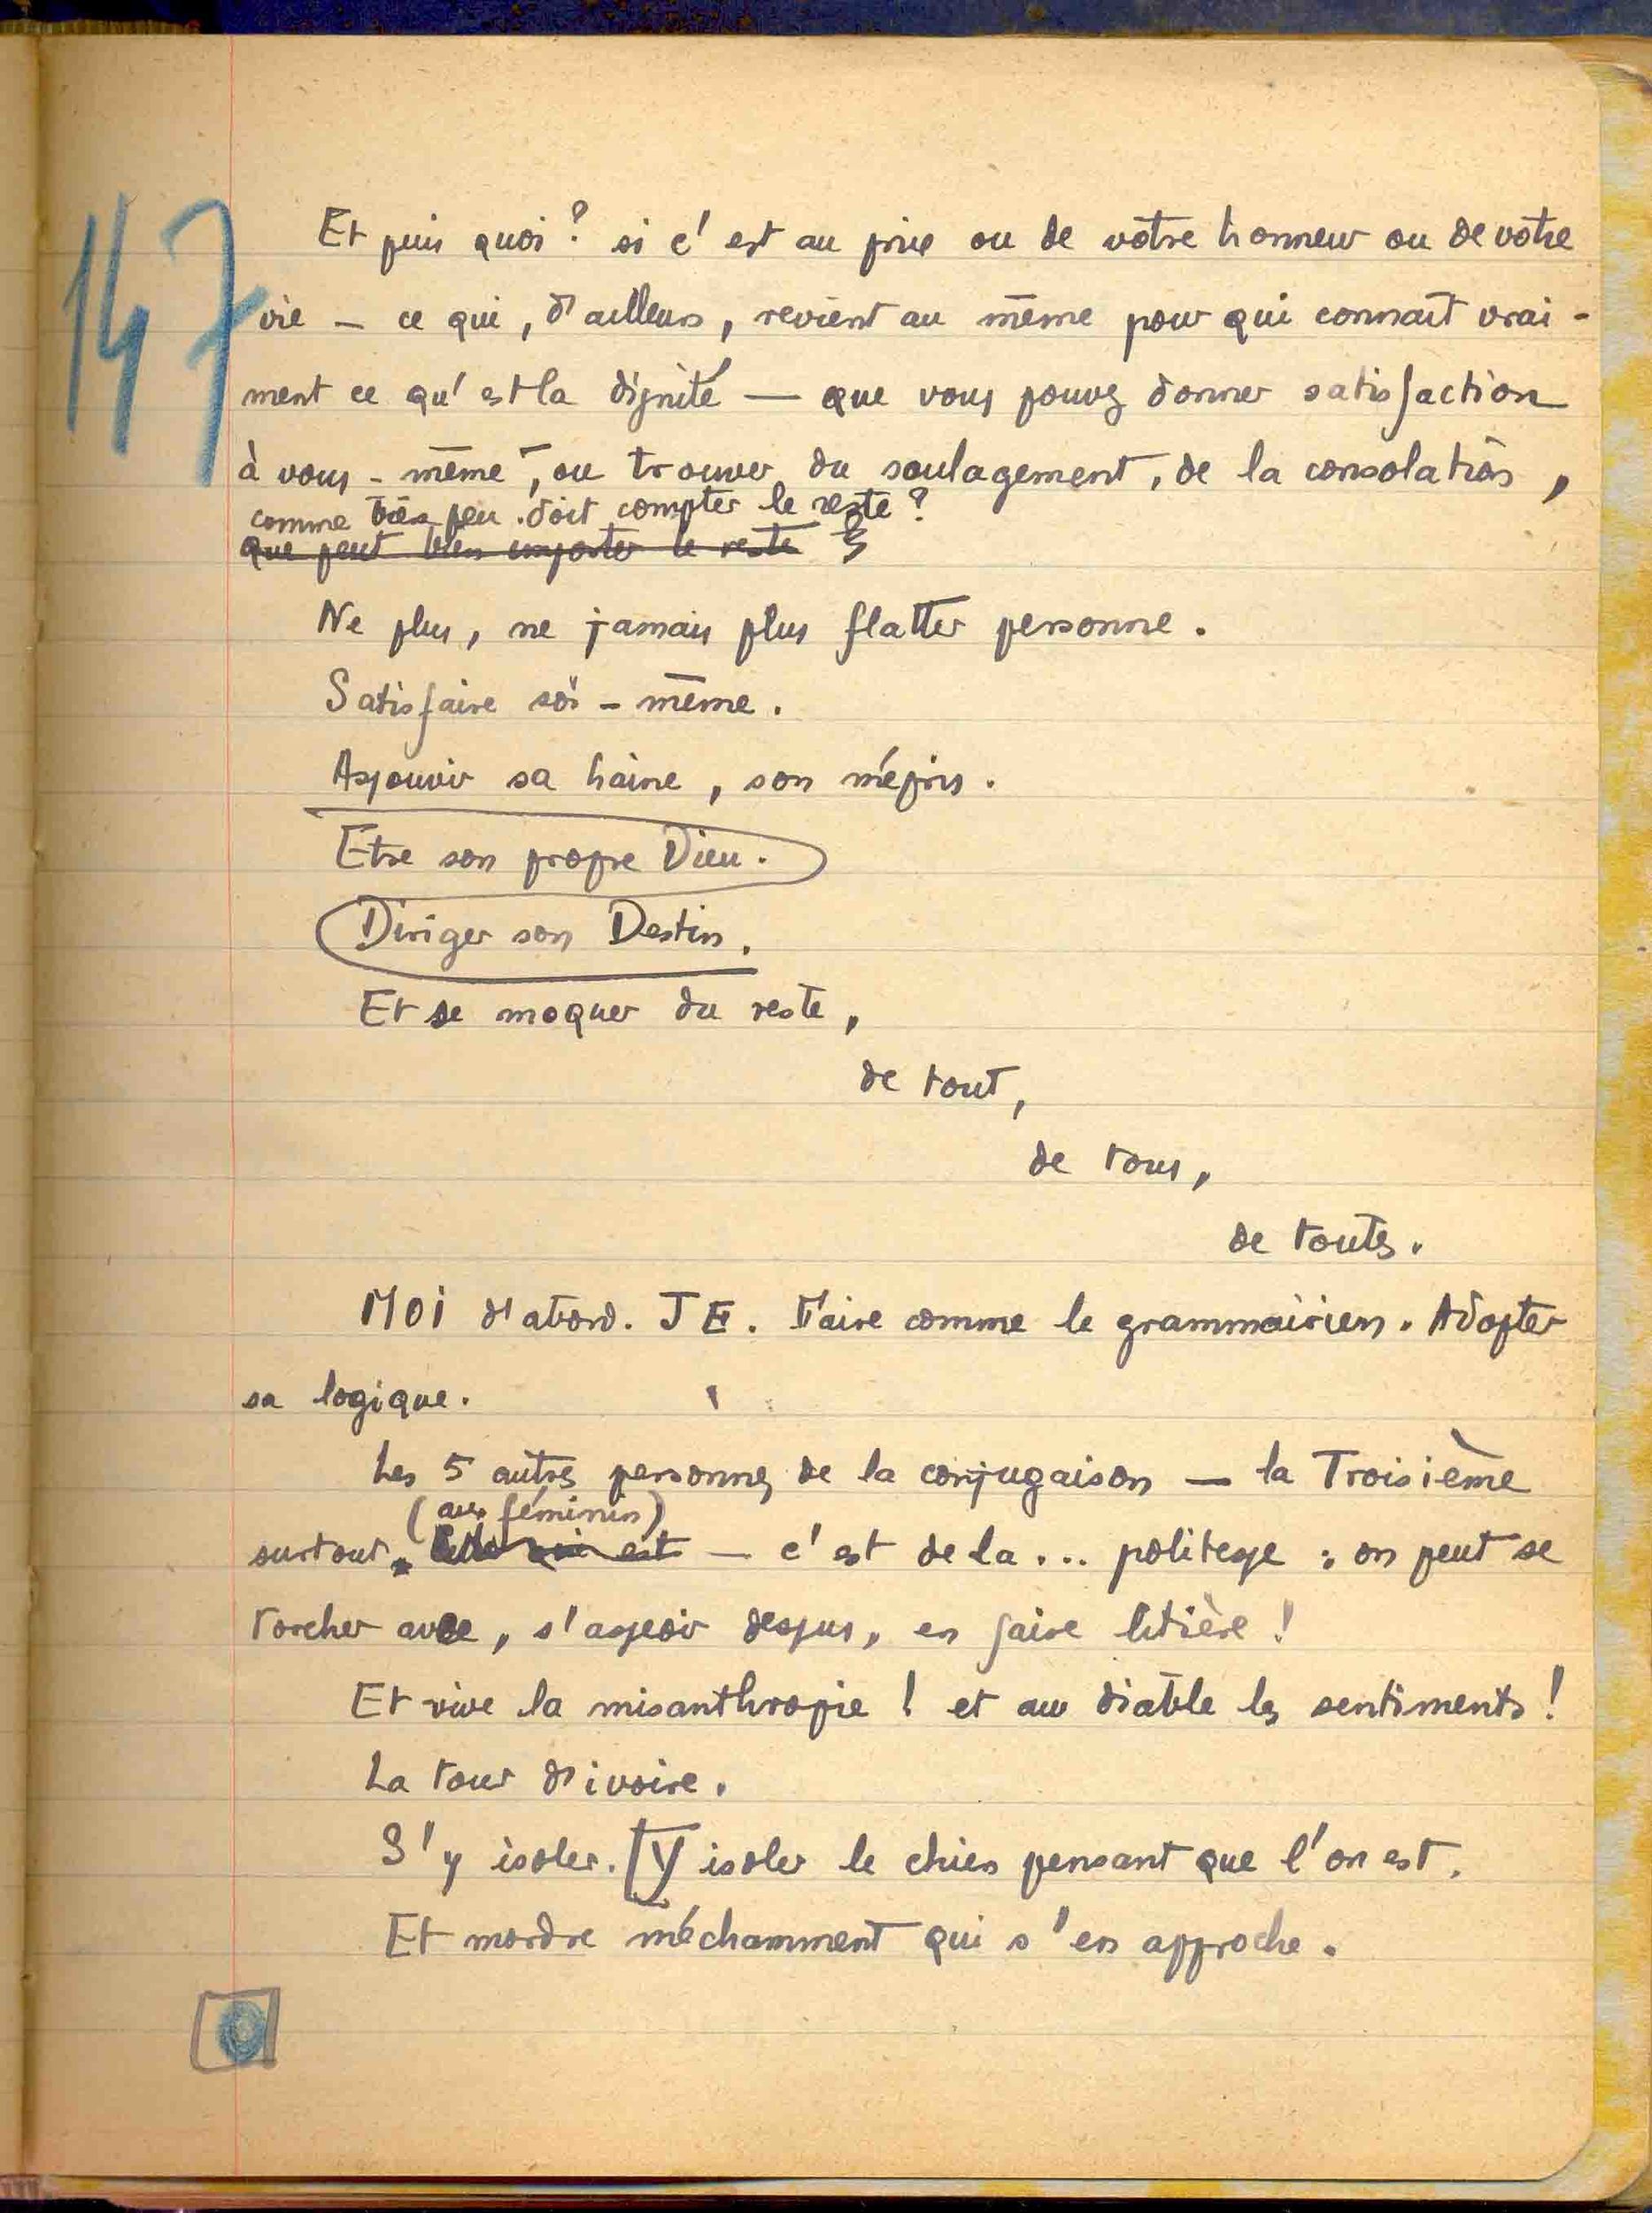 147
Et puis quoi ? si c'est au prix ou de votre honneur ou de votre
vie — ce qui, d'ailleurs, revient au même pour qui connaît vrai-
ment ce qu'est la dignité — que vous pouvez donner satisfaction
à vous-même, ou trouver du soulagement, de la consolation,
comme très peu doit compter le reste ?
que peut bien importer le reste
Ne plus, ne jamais plus flatter personne.
Satisfaire soi-même.
Assouvir sa haine, son mépris.
Etre son propre Dieu.
Diriger son Destin.
Et se moquer du reste,
de tout,
de tous,
de toutes.
MOi d'abord. JE. Faire comme le grammairien. Adopter
sa logique.
Les 5 autres personnes de la conjugaison — la Troisième
(au féminin)
surtout — c'est de la... politesse : on peut se
torcher avec, s'asseoir dessus, en faire litière !
Et vive la misanthropie ! et au diable les sentiments !
La tour d'ivoire.
S'y isoler. [Y isoler le chien pensant que l'on est.
Et mordre méchamment qui s'en approche.